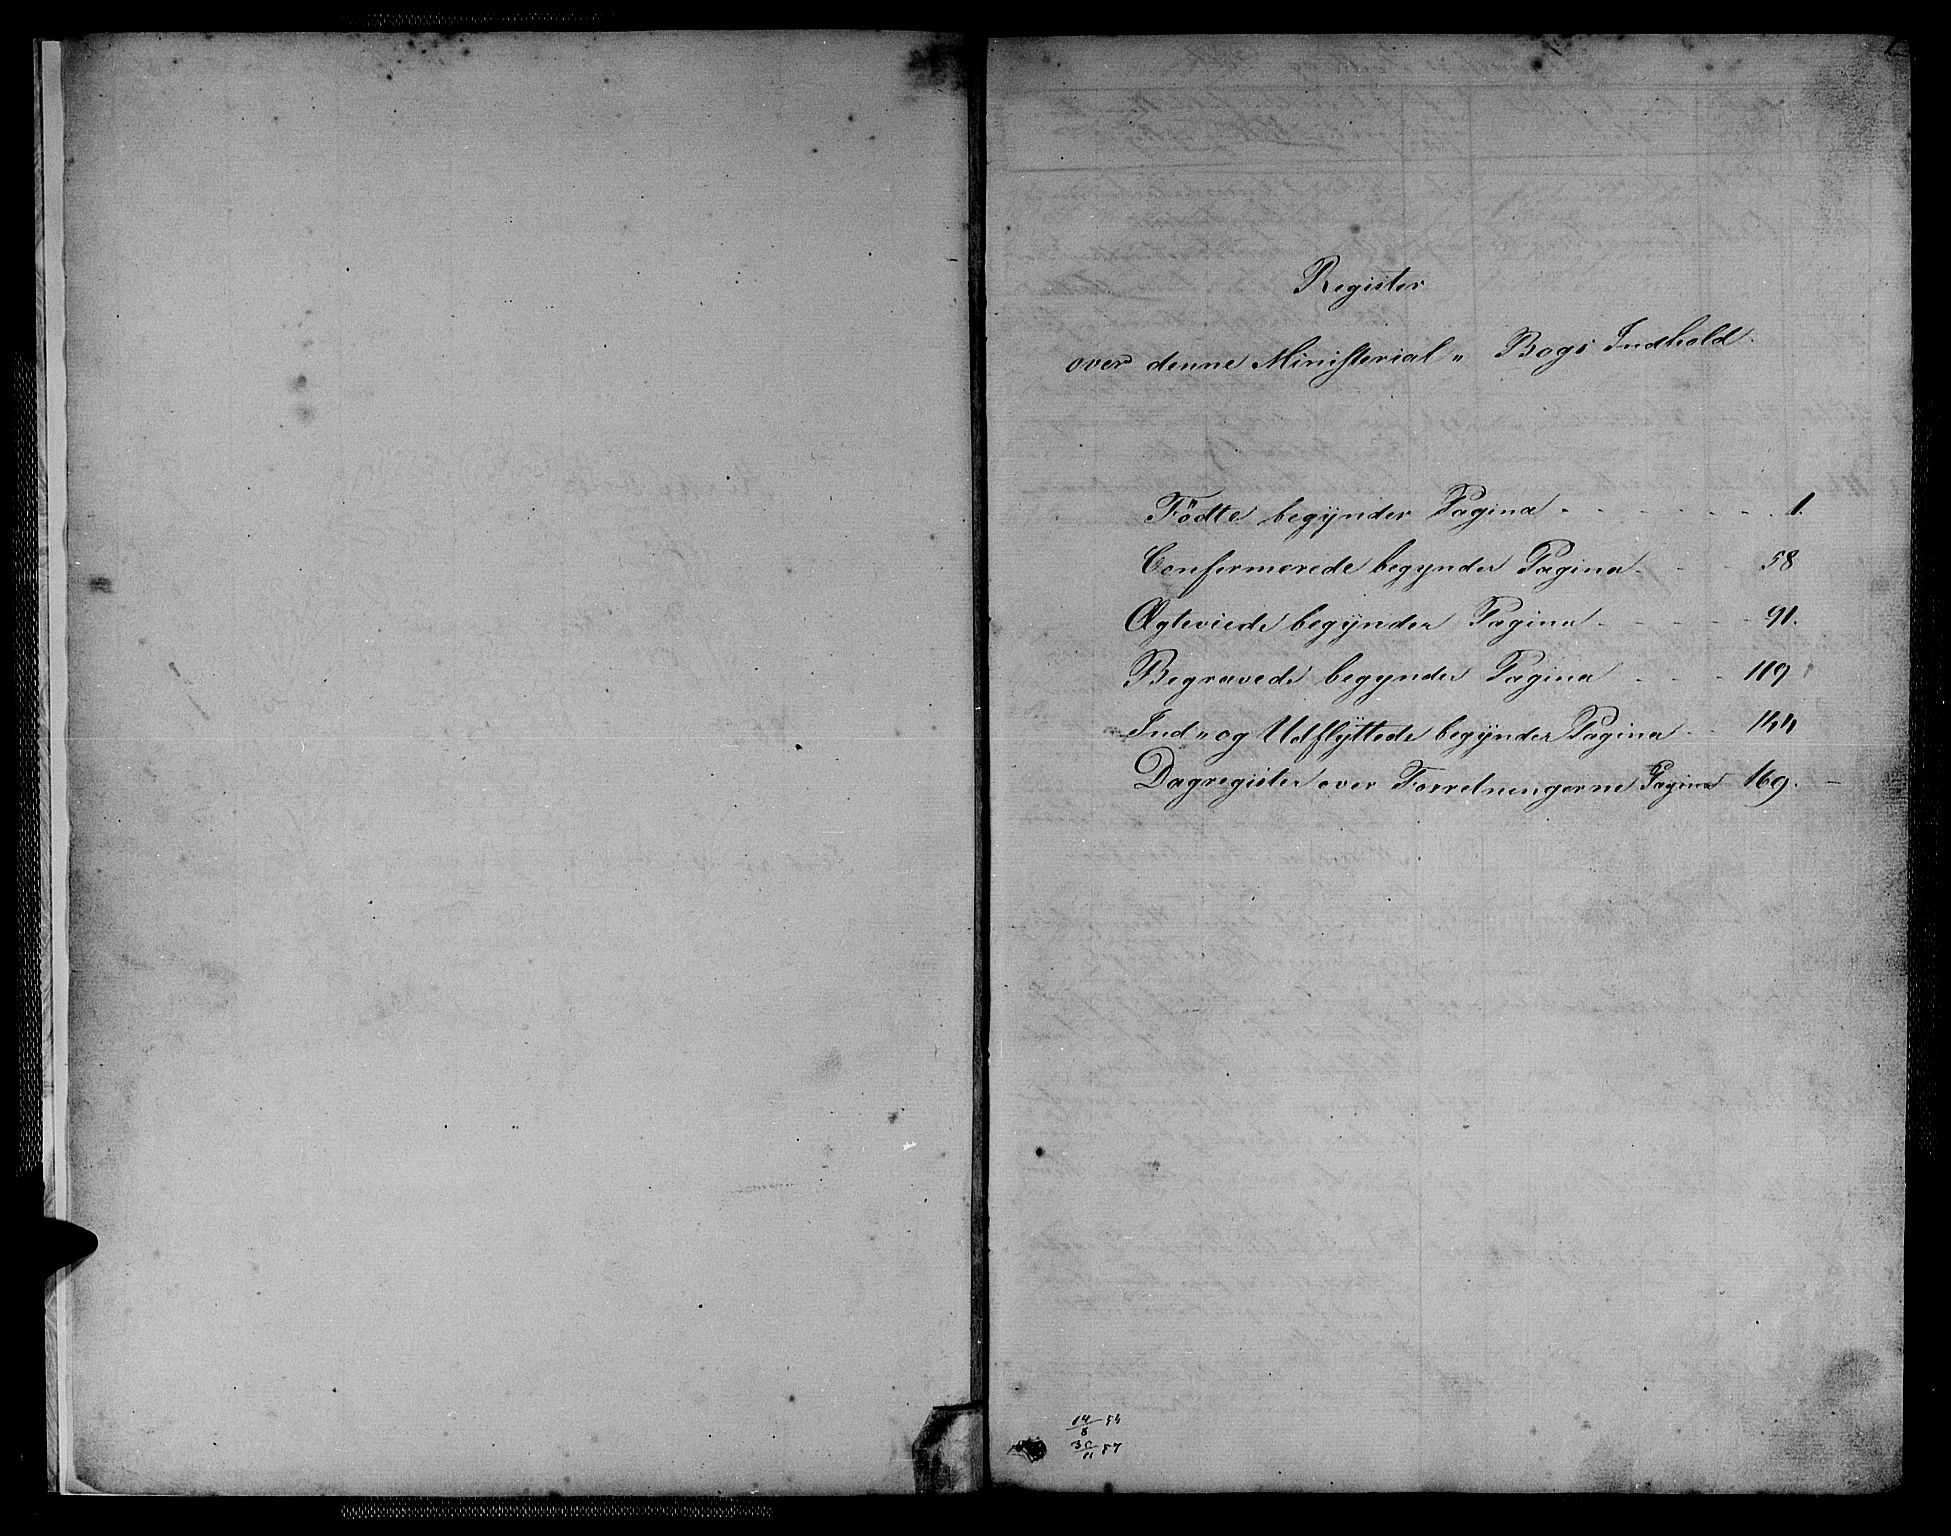 Register
over denne Ministerial „ Bogs Indhold.
Födte begÿnder Pagina - - - - - - - 1.
Confirmerede begynder Pagina - - - 58
Ægteviede begÿnder Pagina - - - - - 91.
Begravede begynder Pagina - - - 119
Ind „ og Udflÿttede begÿnder Pagina - - 144
Dagregister over Forretningerne Pagina 169. -
14/8 54
30/11 57